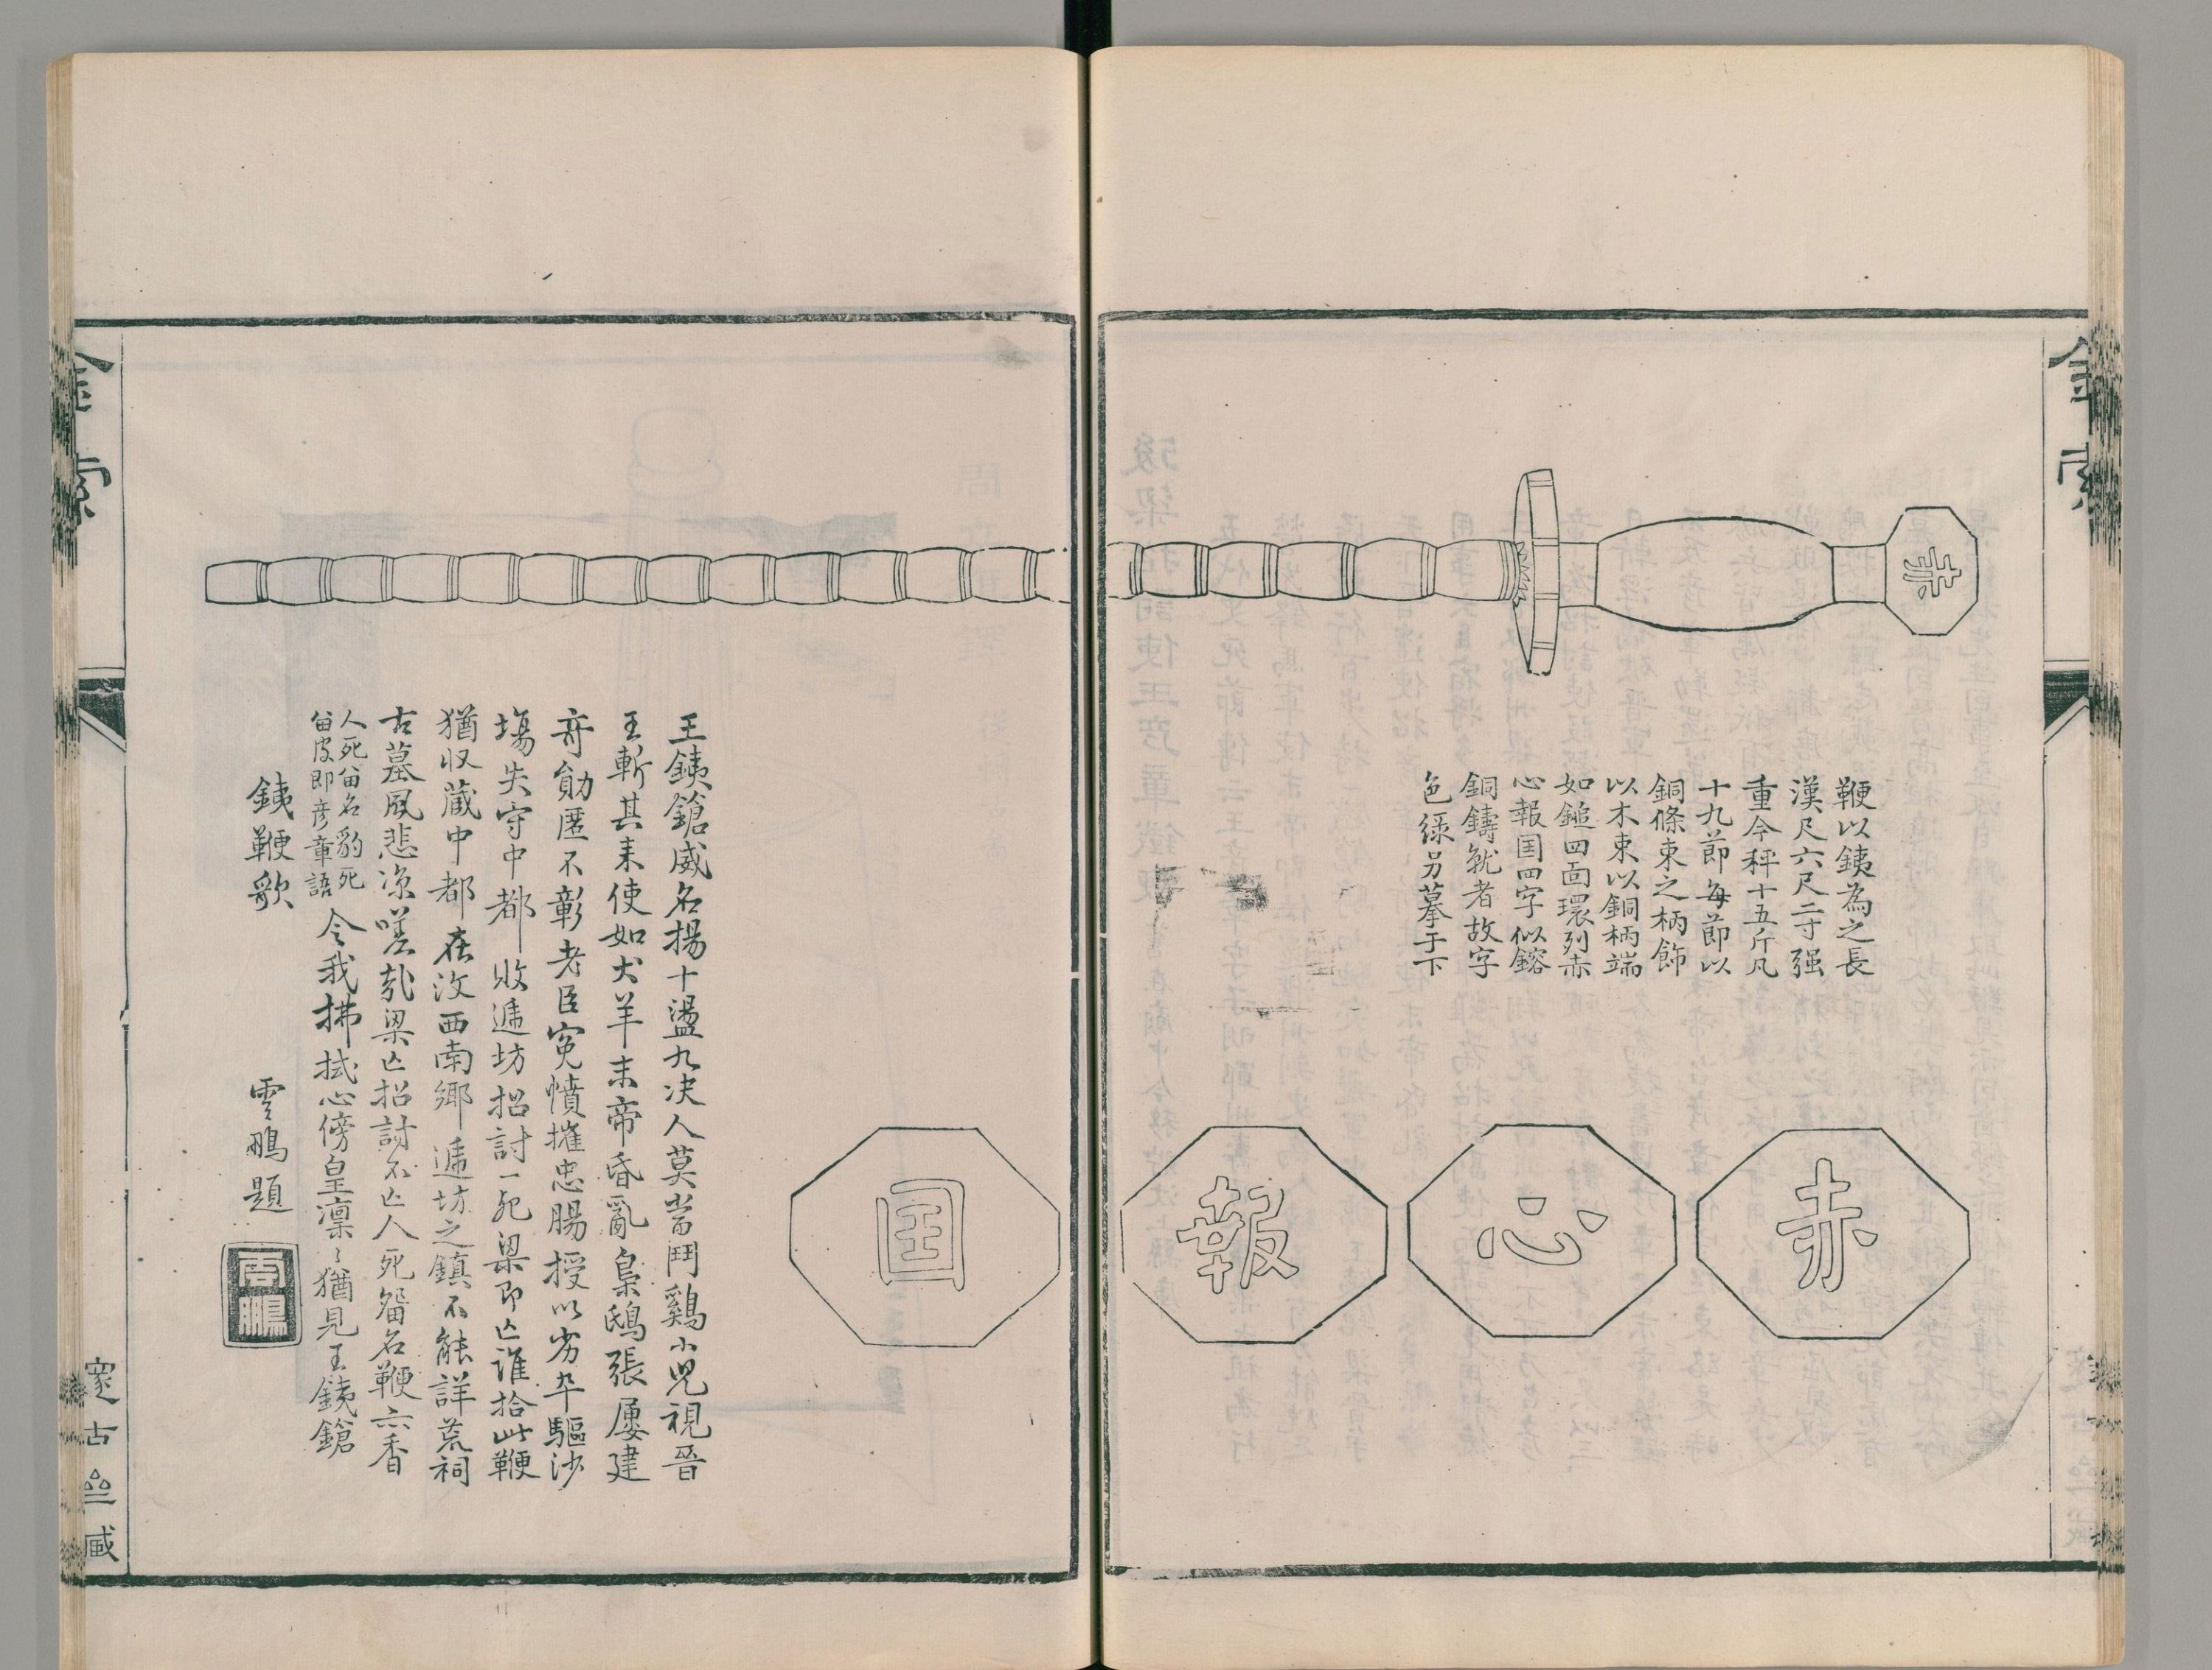 金索
赤
鞭以銕為之長
漢尺六尺二寸强
重今秤十五斤凡
十九節每節以
銅條束之柄飾
以木束以銅柄端
如鎚四面環列赤
心報国四字似鎔
銅鑄就者故字
色緑另摹于下
赤
心
報
国
王銕鎗威名揚十盪九决人莫當鬥鷄小兒視晉
王斬其来使如犬羊末帝昏亂梟鴟張屢建
奇勛匿不彰老臣寃憤摧忠腸授以劣卒驅沙
塲失守中都敗遞坊招討一死梁即亾誰拾此鞭
猶収蔵中都在汶西南鄉遞坊之鎮不能詳荒祠
古墓風悲凉嗟乳梁亾招討不亾人死畱名鞭亦香
人死畱名豹死
畱皮即彦章語
今我拂拭心傍皇凜〻猶見王銕鎗
銕鞭歌
雲鵬題
雲鵬
金索